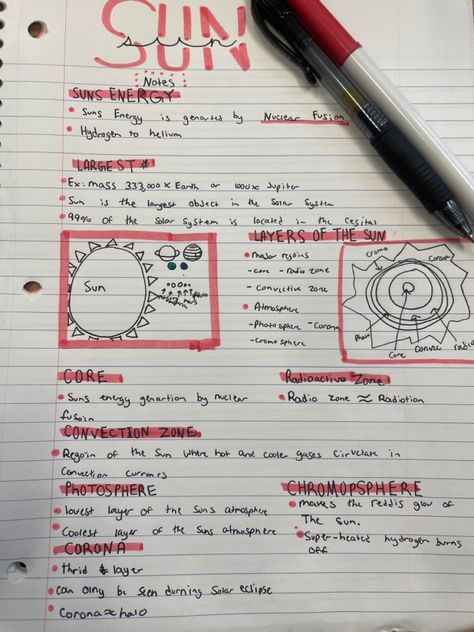 SUN
sun
Notes
SUNS ENERGY
Suns Energy is genarted by Nuclear Fusion
Hydrogen to helium
LARGEST
Ex: mass 333,000x Earth or 1000x Jupiter
Sun is the largest object in the Solar System
99% of the Solar System is located in the
LAYERS OF THE SUN
Sun
major regoins
- core - Radio zone
- Convective zone
Atmosphere
- Photosphere - Corona
- cromosphere
Cromo
Corona
Photo
Core
Convec
radio
CORE
Suns energy genartion by nuclear
fusoin
Radioactive Zone
Radio zone ≈ Radiotion
CONVECTION ZONE
Regoin of the Sun where hot and cooler gases Cirvelate in
Convection currens
PHOTOSPHERE
lowest layer of the Suns atmosphere
Coolest layer of the suns atmosphere
CHROMOPSPHERE
makes the reddis glow of
The Sun.
Super-heated hydrogen burns
off
CORONA
thrid layer
can olny be seen durning Solar eclipse
Corona ≈ halo